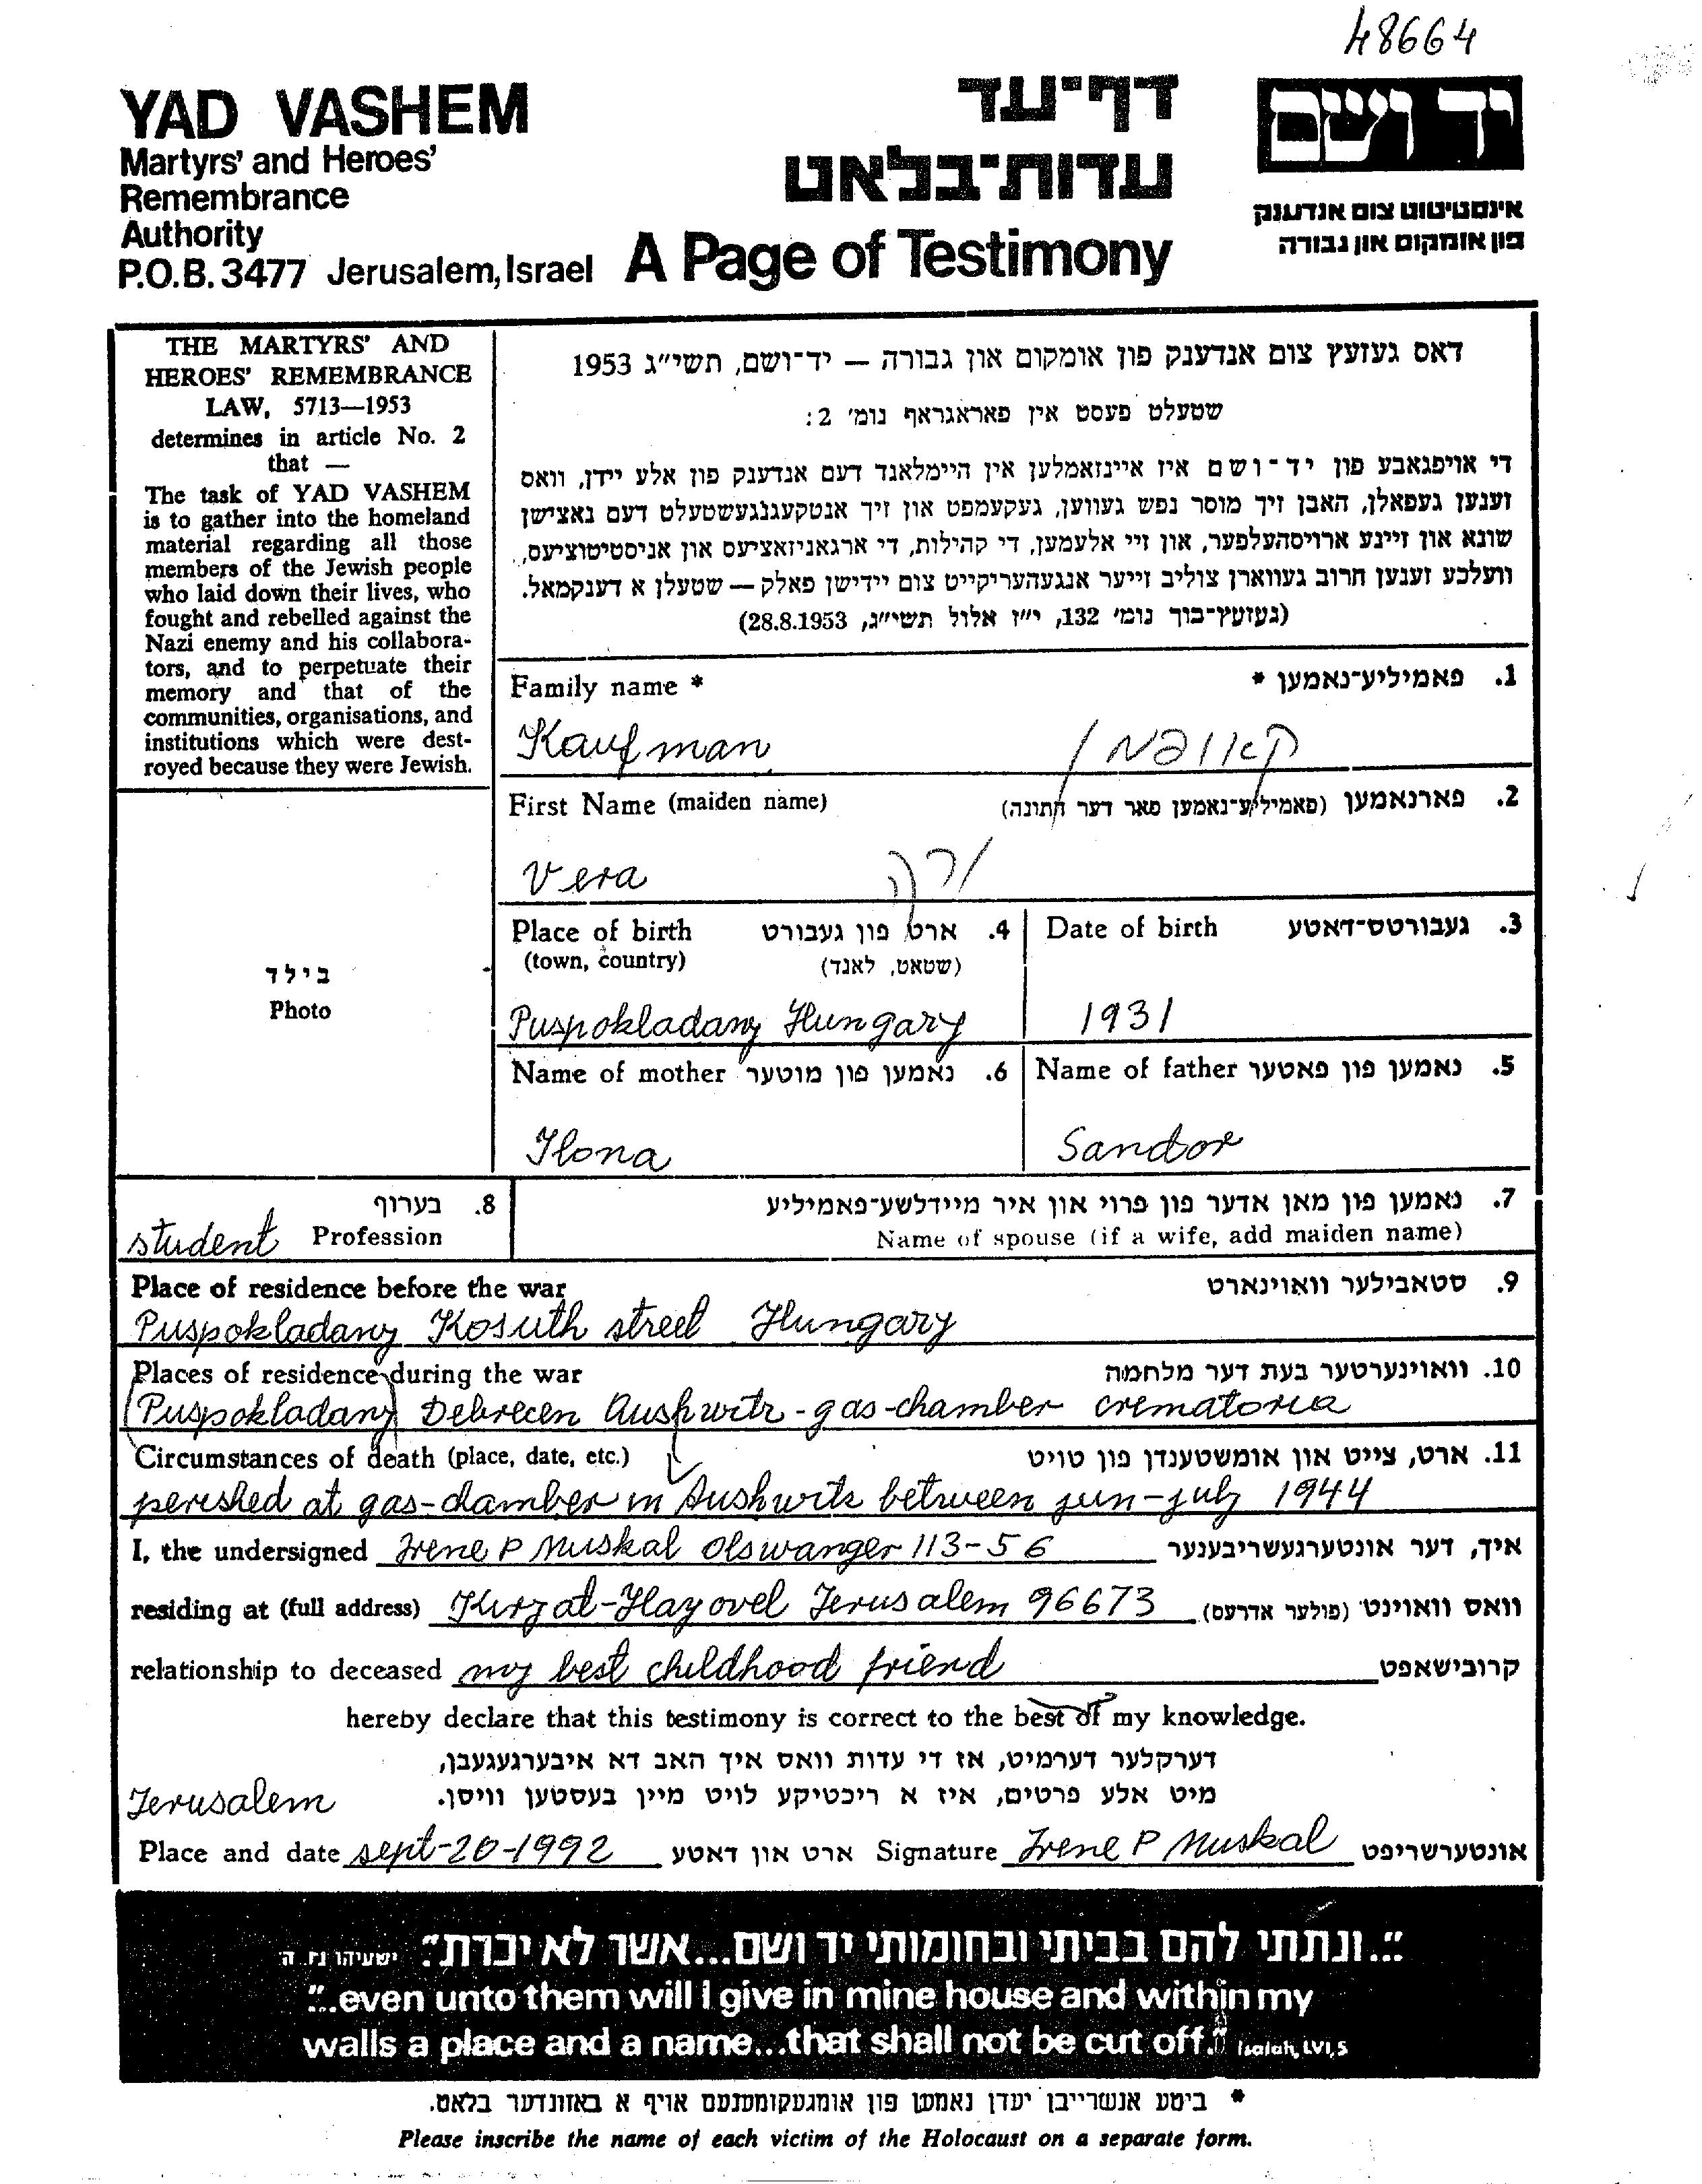 48664
YAD VASHEM
Martyrs' and Heroes'
Remembrance
Authority
P.O.B. 3477 Jerusalem, Israel
דף־עד
עדות־בלאט
A Page of Testimony
יד ושם
אינסטיטוט צום אנדענק
פון אומקום און גבורה
THE MARTYRS' AND
HEROES' REMEMBRANCE
LAW, 5713—1953
determines in article No. 2
that —
The task of YAD VASHEM
is to gather into the homeland
material regarding all those
members of the Jewish people
who laid down their lives, who
fought and rebelled against the
Nazi enemy and his collabora-
tors, and to perpetuate their
memory and that of the
communities, organisations, and
institutions which were dest-
royed because they were Jewish.
דאס געזעץ צום אנדענק פון אומקום און גבורה — יד־ושם, תשי״ג 1953
שטעלט פעסט אין פאראגראף נומ׳ 2:
די אויפגאבע פון יד־ושם איז איינזאמלען אין היימלאנד דעם אנדענק פון אלע יידן, וואס
זענען געפאלן, האבן זיך מוסר נפש געווען, געקעמפט און זיך אנטקעגנגעשטעלט דעם נאצישן
שונא און זיינע ארויסהעלפער, און זיי אלעמען, די קהילות, די ארגאניזאציעס און אניסטיטוציעס,
וועלכע זענען חרוב געווארן צוליב זייער אנגעהעריקייט צום יידישן פאלק — שטעלן א דענקמאל.
(געזעץ־בוך נומ׳ 132, י״ז אלול תשי״ג, 28.8.1953)
Family name * פאמיליע־נאמען * .1
Kaufman קאופמן
First Name (maiden name) פארנאמען (פאמיליע־נאמען פאר דער חתונה) .2
Vera ורה
Place of birth ארט פון געבורט .4
(town, country) (שטאט, לאנד)
Puspokladany Hungary
Date of birth געבורטס־דאטע .3
1931
בילד
Photo
Name of mother נאמען פון מוטער .6
Ilona
Name of father נאמען פון פאטער .5
Sandor
בערוף .8
student Profession
נאמען פון מאן אדער פון פרוי און איר מיידלשע־פאמיליע .7
Name of spouse (if a wife, add maiden name)
Place of residence before the war סטאבילער וואוינארט .9
Puspokladany Kosuth street Hungary
Places of residence during the war וואוינערטער בעת דער מלחמה .10
(Puspokladany) Debrecen Aushwitz - gas-chamber crematoria
Circumstances of death (place, date, etc.) ארט, צייט און אומשטענדן פון טויט .11
perished at gas-chamber in Aushwitz between jun-july 1944
I, the undersigned Irene P Muskal Olswanger 113-56 איך, דער אונטערגעשריבענער
residing at (full address) Kirjat-Hayovel Jerusalem 96673 וואס וואוינט (פולער אדרעס)
relationship to deceased my best childhood friend קרובישאפט
hereby declare that this testimony is correct to the best of my knowledge.
דערקלער דערמיט, אז די עדות וואס איך האב דא איבערגעגעבן,
מיט אלע פרטים, איז א ריכטיקע לויט מיין בעסטען וויסן.
Jerusalem
Place and date sept-20-1992 ארט און דאטע Signature Irene P Muskal אונטערשריפט
״...ונתתי להם בביתי ובחומותי יד ושם...אשר לא יכרת״ ישעיהו נו, ה
"...even unto them will I give in mine house and within my
walls a place and a name...that shall not be cut off." Isaiah, LVI, 5
* ביטע אנשרייבן יעדן נאמען פון אומגעקומענעם אויף א באזונדער בלאט.
Please inscribe the name of each victim of the Holocaust on a separate form.